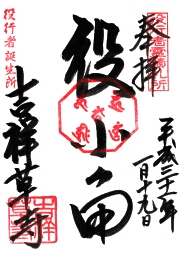 奉拝
平成二十一年
一月十九日
役小角
役行者誕生所
吉祥草寺